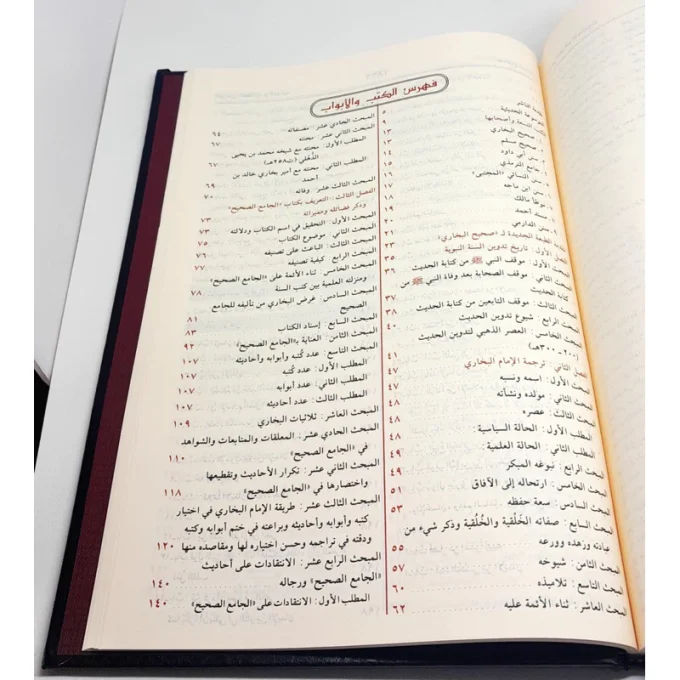 فهرس الكتب والأبواب
مقدمة الناشر ٥
الموسوعة الحديثية
الكتب التسعة وأصحابها ٩
١ - صحيح البخاري ١٣
٢ - صحيح مسلم ١٣
سنن أبي داود ١٤
جامع الترمذي ١٥
سنن النسائي «المجتبى» ١٦
سنن ابن ماجه ١٧
موطأ مالك ١٨
مسند أحمد ١٩
سنن الدارمي ٢٠
الطبعة الجديدة لـ «صحيح البخاري» ٢١
الفصل الأول: تاريخ تدوين السنة النبوية ٢٣
المبحث الأول: موقف النبي ﷺ من كتابة الحديث ٣٥
المبحث الثاني: موقف الصحابة بعد وفاة النبي ﷺ من ٣٦
كتابة الحديث ٣٧
المبحث الثالث: موقف التابعين من كتابة الحديث ٣٨
المبحث الرابع: شيوع تدوين الحديث ٤٠
المبحث الخامس: العصر الذهبي لتدوين الحديث
(٢٠٠ - ٣٠٠هـ) ٤١
الفصل الثاني: ترجمة الإمام البخاري ٤٧
المبحث الأول: اسمه ونسبه ٤٧
المبحث الثاني: مولده ونشأته ٤٨
المبحث الثالث: عصره
المطلب الأول: الحالة السياسية ٤٨
المطلب الثاني: الحالة العلمية ٤٩
المبحث الرابع: نبوغه المبكر ٤٩
المبحث الخامس: ارتحاله إلى الآفاق ٥١
المبحث السادس: سعة حفظه ٥٣
المبحث السابع: صفاته الخَلْقية والخُلُقية وذكر شيء من
عبادته وزهده وورعه ٥٥
المبحث الثامن: شيوخه ٥٧
المبحث التاسع: تلاميذه ٦٠
المبحث العاشر: ثناء الأئمة عليه ٦٢
المبحث الحادي عشر: مصنفاته ٦٤
المبحث الثاني عشر: محنته ٦٧
المطلب الأول: محنته مع شيخه محمد بن يحيى
الذُّهْلي (ت٢٥٨هـ) ٦٧
المطلب الثاني: محنته مع أمير بخارى خالد بن
أحمد ٦٩
المبحث الثالث عشر: وفاته ٧٠
الفصل الثالث: التعريف بكتاب «الجامع الصحيح»
وذكر فضائله ومميزاته ٧٣
المبحث الأول: التحقيق في اسم الكتاب ودلالته ٧٣
المبحث الثاني: موضوع الكتاب ٧٥
المبحث الثالث: الباعث على تصنيفه ٧٦
المبحث الرابع: كيفية تصنيفه ٧٧
المبحث الخامس: ثناء الأئمة على «الجامع الصحيح»
ومنزلته العلمية بين كتب السنة ٧٨
المبحث السادس: غرض البخاري من تأليفه للجامع
الصحيح ٨١
المبحث السابع: إسناد الكتاب ٨٣
المبحث الثامن: العناية بـ«الجامع الصحيح» ٩٢
المبحث التاسع: عدد كُتبه وأبوابه وأحاديثه ١٠٧
المطلب الأول: عدد كُتبه ١٠٧
المطلب الثاني: عدد أبوابه ١٠٧
المطلب الثالث: عدد أحاديثه ١٠٧
المبحث العاشر: ثلاثيات البخاري ١٠٩
المبحث الحادي عشر: المعلقات والمتابعات والشواهد
في «الجامع الصحيح» ١١٠
المبحث الثاني عشر: تكرار الأحاديث وتقطيعها
واختصارها في «الجامع الصحيح» ١١٨
المبحث الثالث عشر: طريقة الإمام البخاري في اختيار
كتبه وأبوابه وأحاديثه وبراعته في ختم أبوابه وكتبه
ودقته في تراجمه وحسن اختياره لها ومقاصده منها ١٢٠
المبحث الرابع عشر: الانتقادات على أحاديث
«الجامع الصحيح» ورجاله ١٤٠
المطلب الأول: الانتقادات على «الجامع الصحيح» ١٤٠